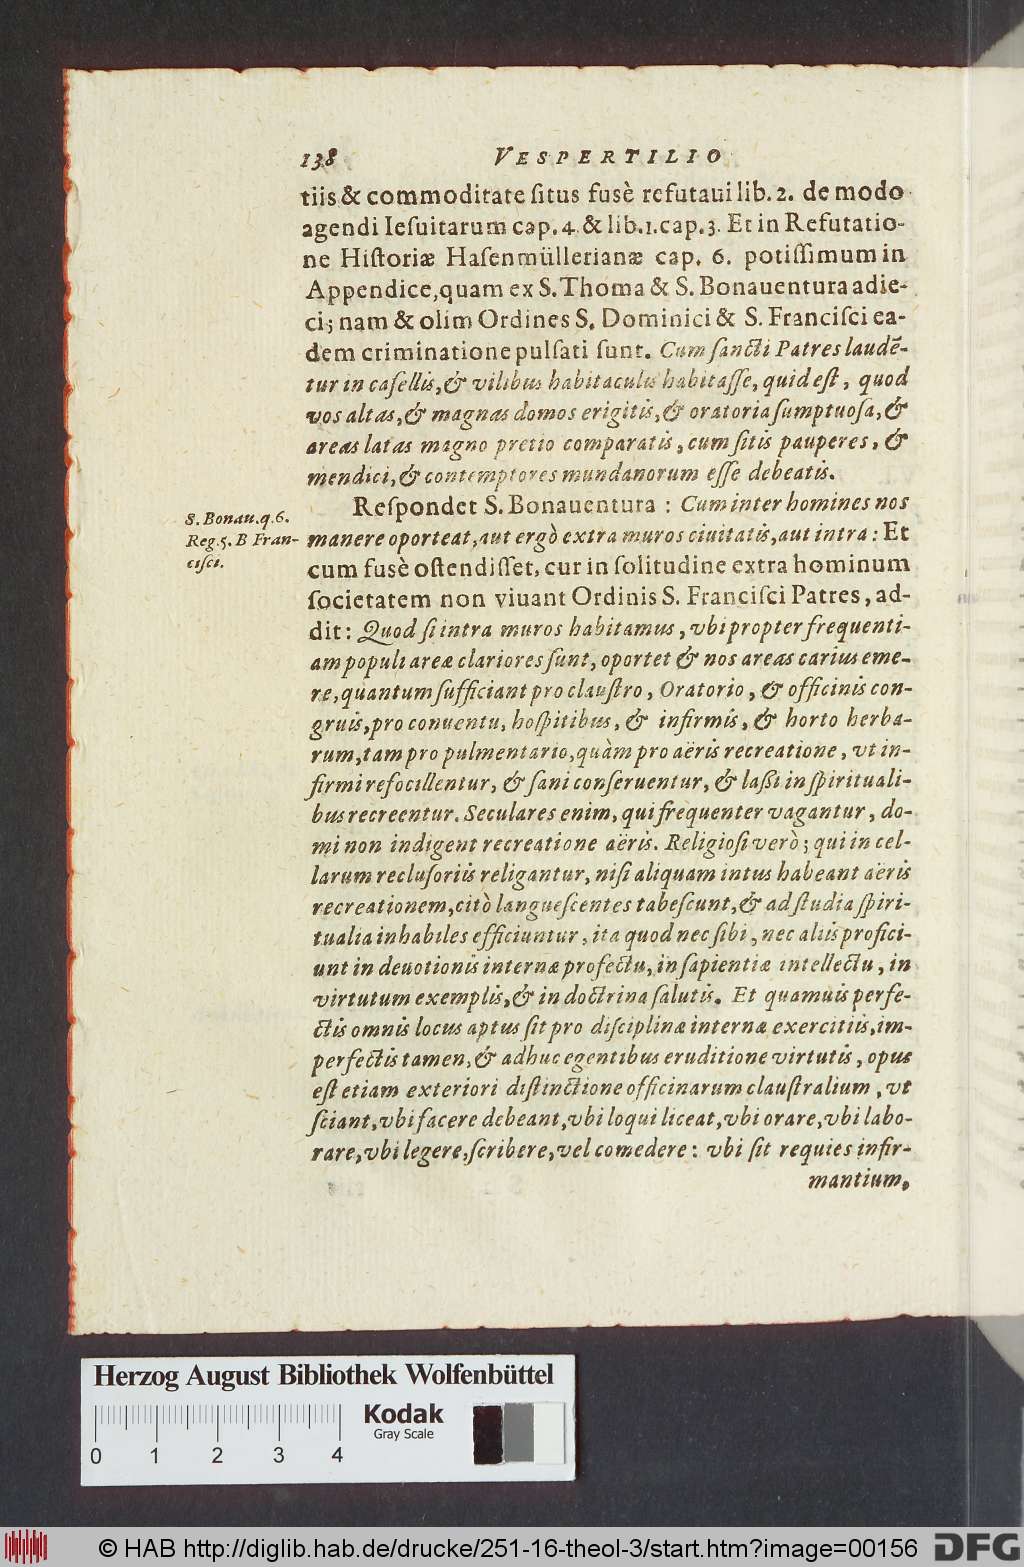 138 VESPERTILIO
tiis & commoditate ſitus fusè refutaui lib. 2. de modo
agendi Ieſuitarum cap. 4. & lib. 1. cap. 3. Et in Refutatio-
ne Hiſtoriæ Haſenmüllerianæ cap. 6. potiſſimum in
Appendice, quam ex S. Thoma & S. Bonauentura adie-
ci; nam & olim Ordines S. Dominici & S. Franciſci ea-
dem criminatione pulſati ſunt. Cum ſancti Patres laudē-
tur in caſellis, & vilibus habitaculis habitaſſe, quid eſt, quod
vos altas, & magnas domos erigitis, & oratoria ſumptuoſa, &
areas latas magno pretio comparatis, cum ſitis pauperes, &
mendici, & contemptores mundanorum eſſe debeatis.
Reſpondet S. Bonauentura : Cum inter homines nos
S. Bonau. q. 6.
Reg. 5. B Fran-
ciſci.
manere oporteat, aut ergò extra muros ciuitatis, aut intra : Et
cum fusè oſtendiſſet, cur in ſolitudine extra hominum
ſocietatem non viuant Ordinis S. Franciſci Patres, ad-
dit : Quod ſi intra muros habitamus, vbi propter frequenti-
am populi areæ clariores ſunt, oportet & nos areas carius eme-
re, quantum ſufficiant pro clauſtro, Oratorio, & officinis con-
gruis, pro conuentu, hoſpitibus, & infirmis, & horto herba-
rum, tam pro pulmentario, quàm pro aëris recreatione, vt in-
firmi refocillentur, & ſani conſeruentur, & laßi in ſpirituali-
bus recreentur. Seculares enim, qui frequenter vagantur, do-
mi non indigent recreatione aëris. Religioſi verò; qui in cel-
larum recluſoriis religantur, niſi aliquam intus habeant aëris
recreationem, citò langueſcentes tabeſcunt, & ad ſtudia ſpiri-
tualia inhabiles efficiuntur, ita quod nec ſibi, nec aliis profici-
unt in deuotionis internæ profectu, in ſapientiæ intellectu, in
virtutum exemplis, & in doctrina ſalutis. Et quamuis perfe-
ctis omnis locus aptus ſit pro diſciplinæ internæ exercitiis, im-
perfectis tamen, & adhuc egentibus eruditione virtutis, opus
eſt etiam exteriori diſtinctione officinarum clauſtralium, vt
ſciant, vbi facere debeant, vbi loqui liceat, vbi orare, vbi labo-
rare, vbi legere, ſcribere, vel comedere : vbi ſit requies infir-
mantium,
Herzog August Bibliothek Wolfenbüttel
Kodak
Gray Scale
0 1 2 3 4
© HAB http://diglib.hab.de/drucke/251-16-theol-3/start.htm?image=00156
DFG